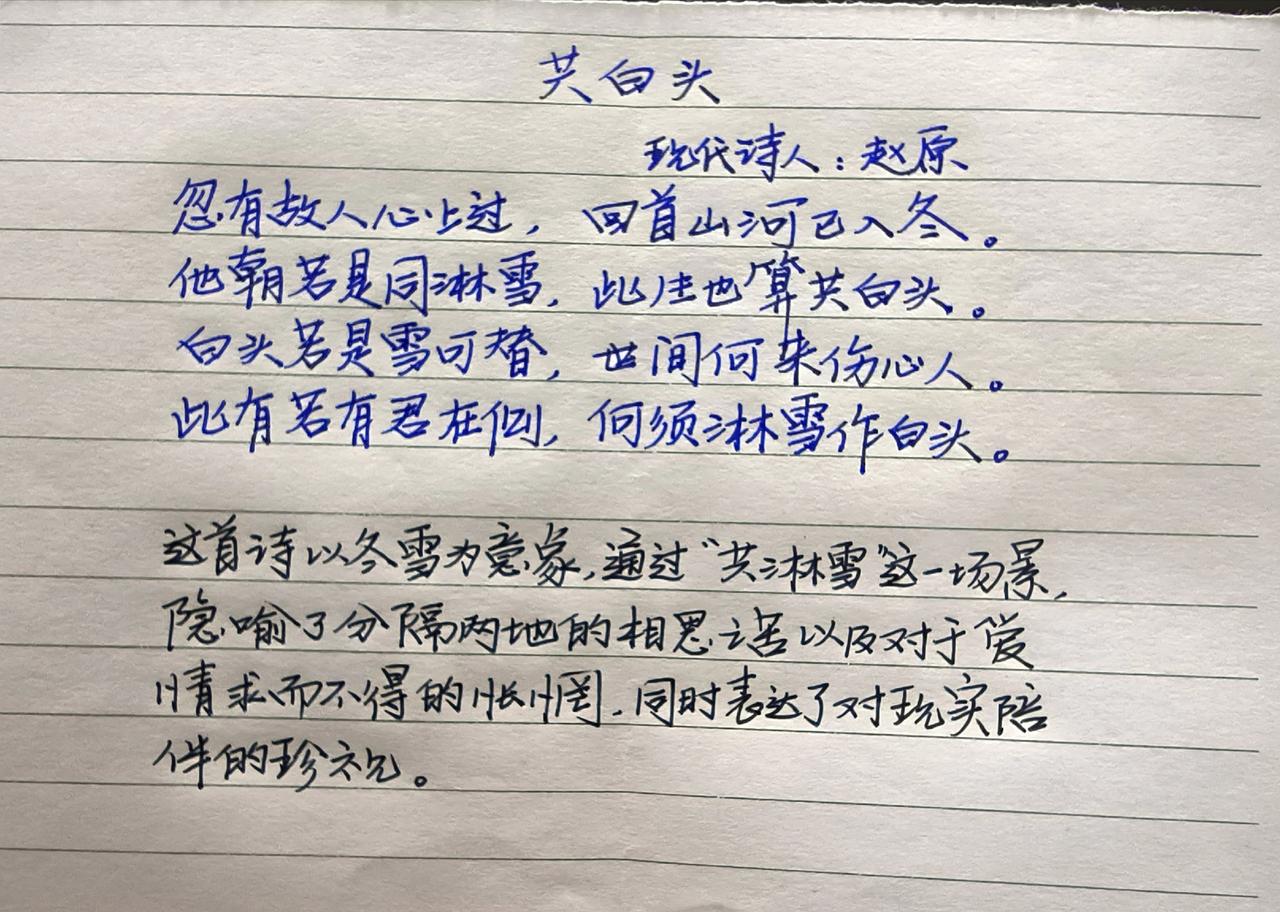 共白头
现代诗人：赵原
忽有故人心上过，回首山河已入冬。
他朝若是同淋雪，此生也算共白头。
白头若是雪可替，世间何来伤心人。
此有若有君在侧，何须淋雪作白头。
这首诗以冬雪为意象，通过“共淋雪”这一场景，
隐喻了分隔两地的相思之苦以及对于爱
情求而不得的怅惘，同时表达了对现实陪
伴的珍视。